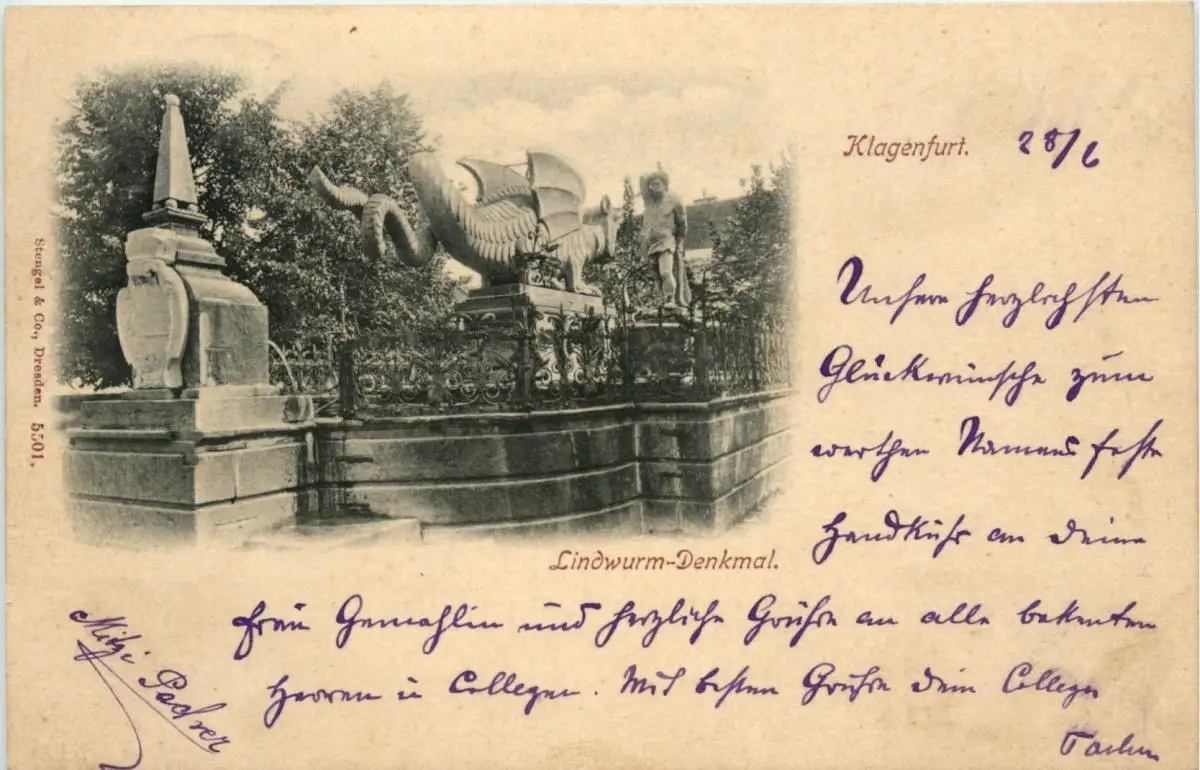 Klagenfurt. 28/6
Unsere herzlichsten
Glückwünsche zum
werthen Namensfeste
Handkuß an Deine
Lindwurm-Denkmal.
Frau Gemahlin und herzliche Grüße an alle bekenten
Herren u Collegen. Mit besten Grüße Dein College
Mitzi Pacher
Stengel & Co., Dresden. 5501.